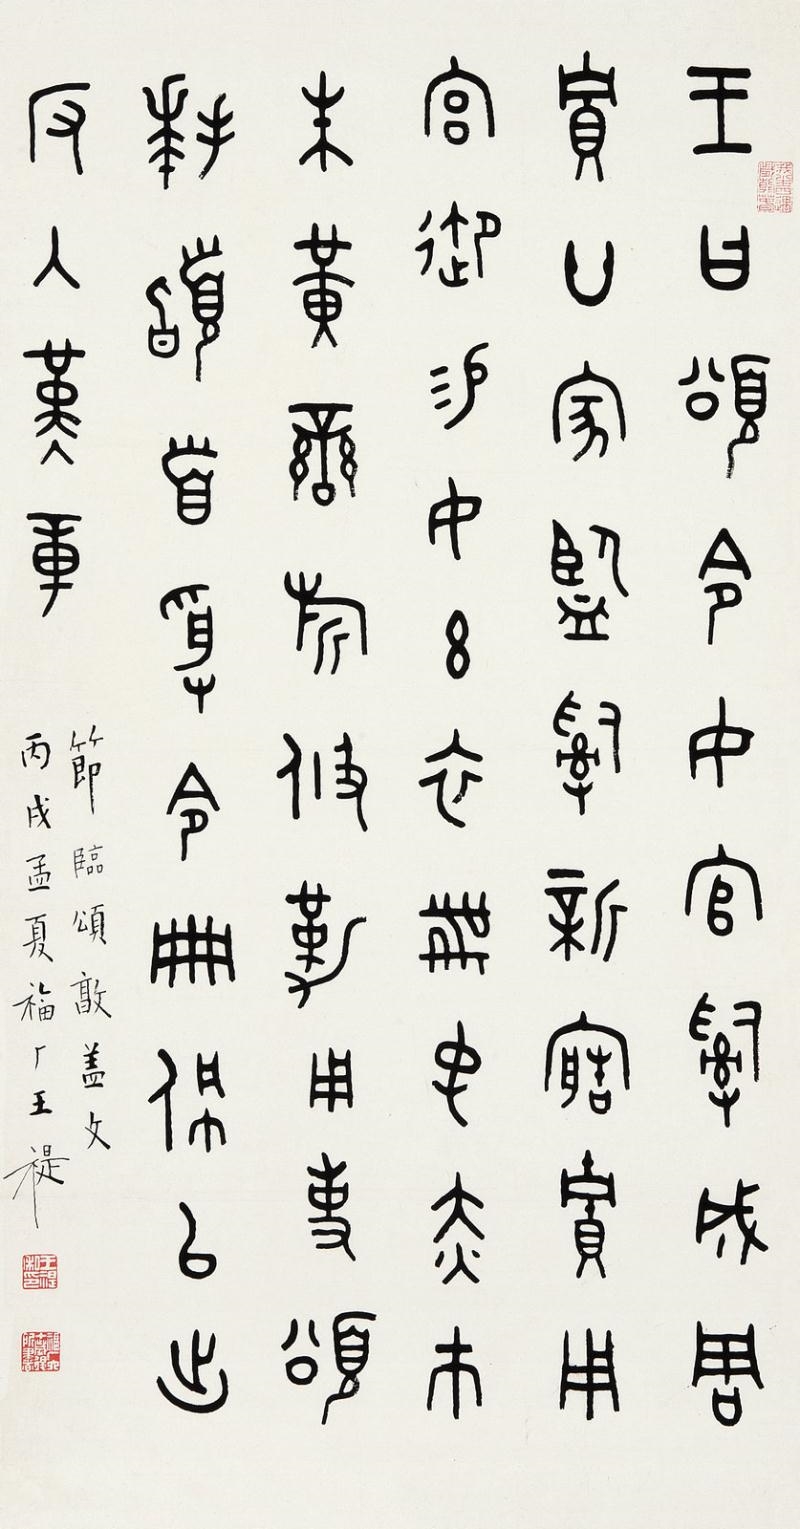 王曰頌令女官𤔲成周
貯廿家監𤔲新造貯用
宮御易女玄衣黹屯赤市
朱黃䜌旂攸勒用事頌
拜䭫首受令冊佩以出
反入堇章
節臨頌敦盖文
丙戌孟夏福厂王禔
王禔私印